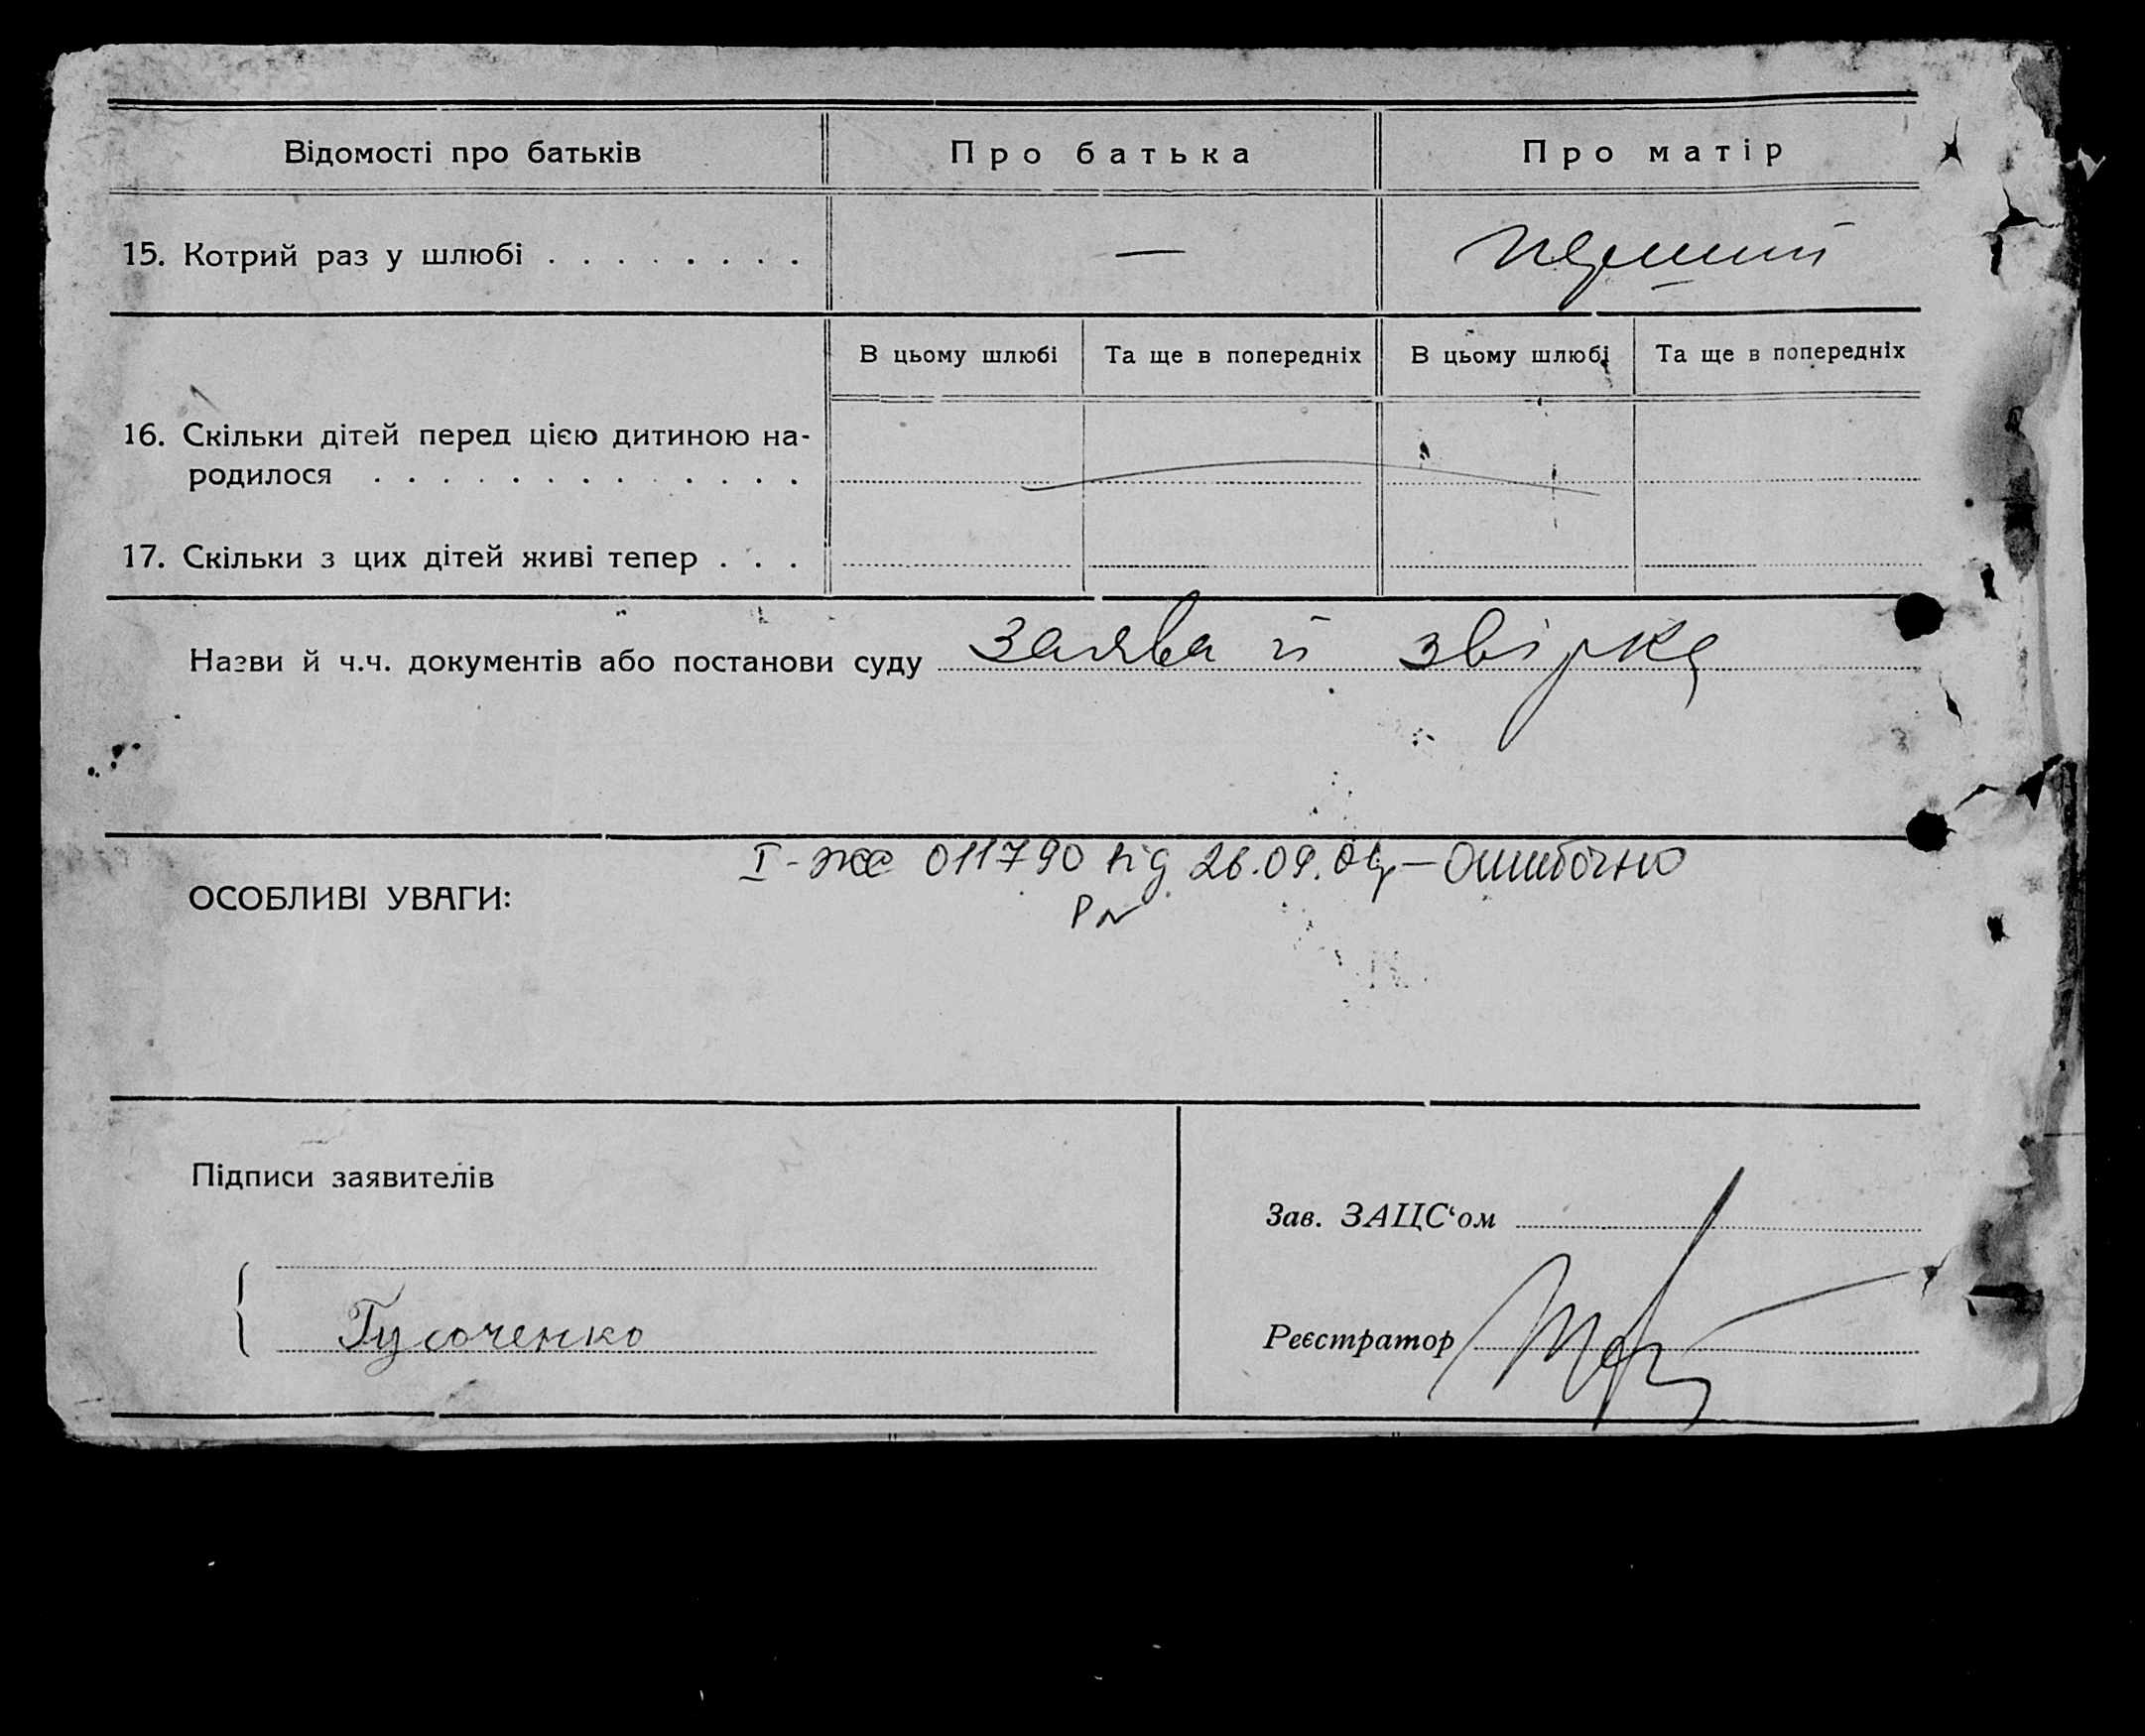 Відомості про батьків Про батька Про матір
15. Котрий раз у шлюбі . . . . . . . . — перший
В цьому шлюбі Та ще в попередніх В цьому шлюбі Та ще в попередніх
16. Скільки дітей перед цією дитиною на-
родилося . . . . . . . . . . . .
17. Скільки з цих дітей живі тепер . . .
Назви й ч.ч. документів або постанови суду заява й звірка
І-жс 011790 від 26.09. — Ошибочно
ОСОБЛИВІ УВАГИ:
Підписи заявителів
Зав. ЗАЦС‘ом
Гусоченко
Реєстратор